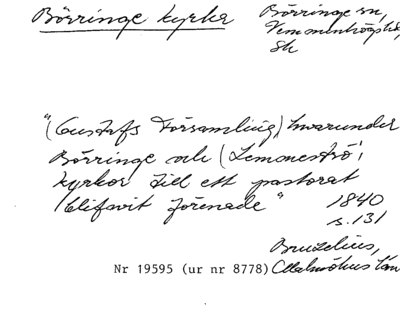 Börringe kyrka
Börringe sn,
Vemmenhögs hd,
Sk
"(Gustafs Församling), hvarunder
Börringe och (Lemmeströ',
kyrkor till ett pastorat
blifvit förenade"
1840
s. 131
Bruzelius,
Malmöhus län
Nr 19595 (ur nr 8778)